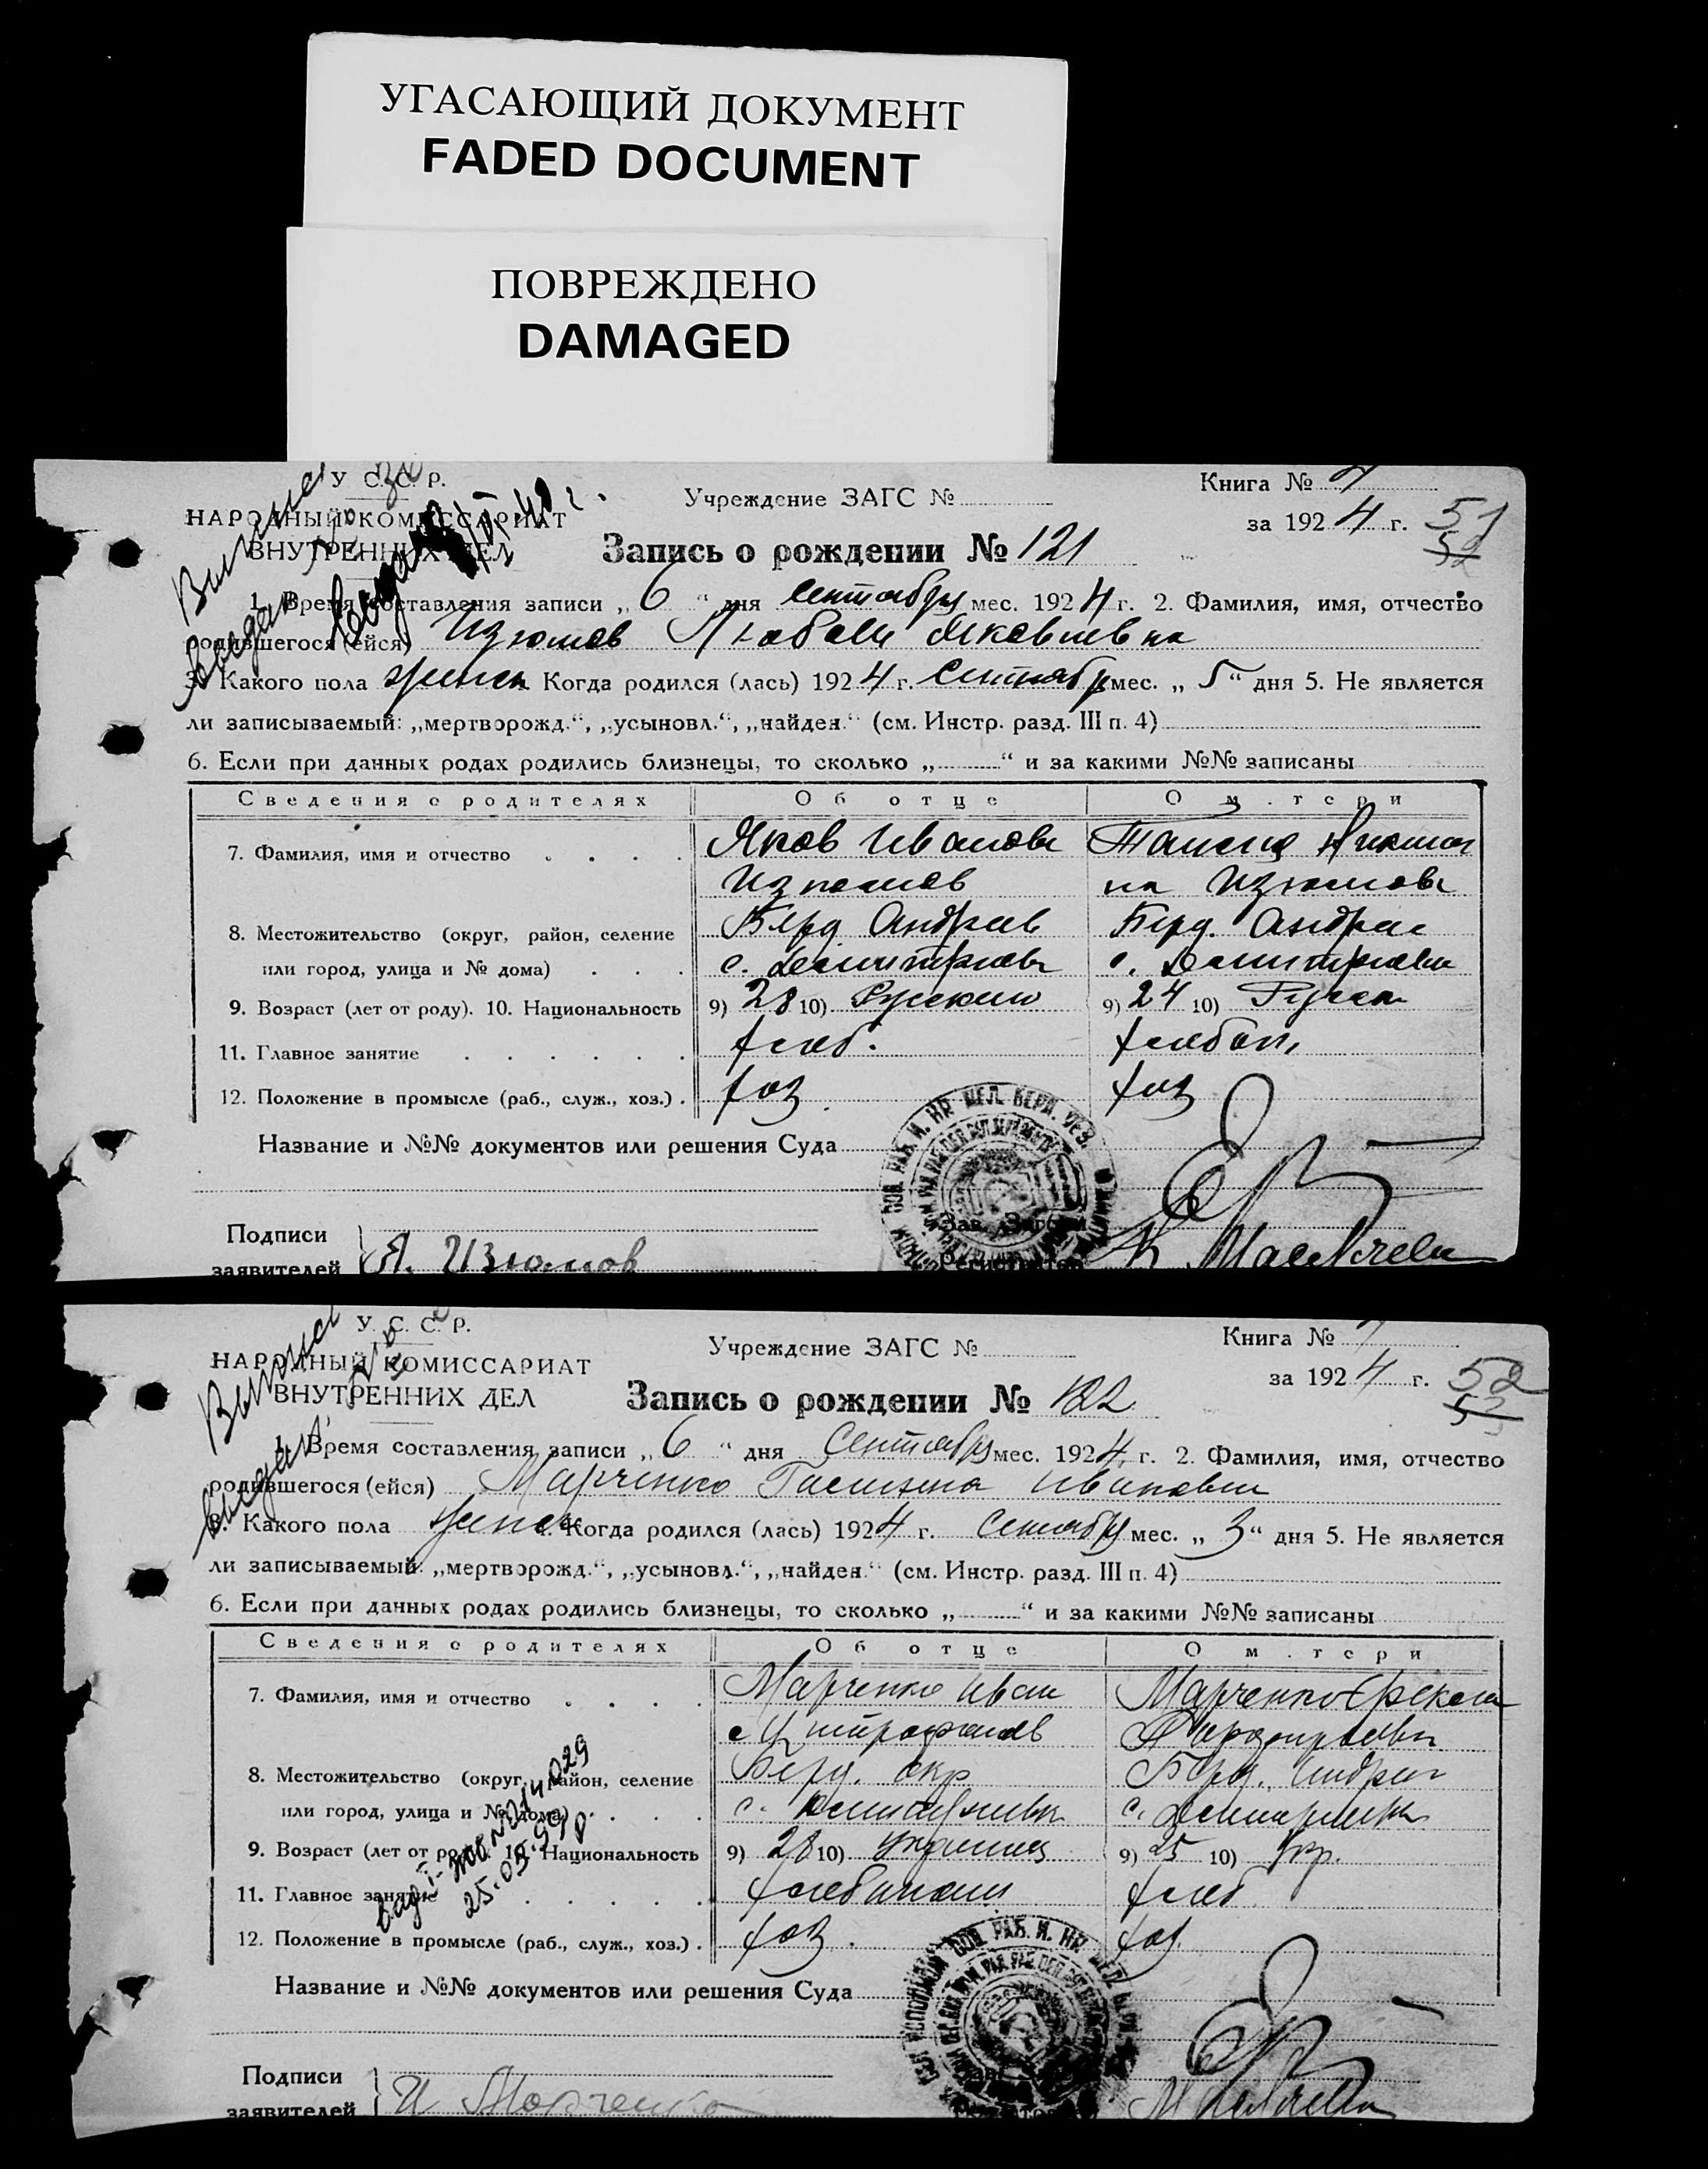 УГАСАЮЩИЙ ДОКУМЕНТ
FADED DOCUMENT
ПОВРЕЖДЕНО
DAMAGED
У. С. С. Р.
НАРОДНЫЙ КОМИССАРИАТ
ВНУТРЕННИХ ДЕЛ
Учреждение ЗАГС №
Книга № 7
за 1924 г.
51
52
Запись о рождении № 121
1. Время составления записи „6“ дня сентября мес. 1924 г. 2. Фамилия, имя, отчество
родившегося (ейся) Изюмов Любовь Яковлевна
3. Какого пола женск Когда родился (лась) 1924 г. Сентября мес. „5“ дня 5. Не является
ли записываемый: „мертворожд.“, „усыновл.“, „найден.“ (см. Инстр. разд. III п. 4)
6. Если при данных родах родились близнецы, то сколько „ “ и за какими №№ записаны
Сведения о родителях Об отце О матери
7. Фамилия, имя и отчество Яков Иванов Таисия
Изюмов на Изюмова
8. Местожительство (округ, район, селение Берд Андреев Берд. Андрее
или город, улица и № дома) с. Дмитриевк с. Дмитриевк
9. Возраст (лет от роду). 10. Национальность 9) 28 10) Русский 9) 24 10) Русск
11. Главное занятие хлеб. хлебоп,
12. Положение в промысле (раб., служ., хоз.) хоз хоз
Название и №№ документов или решения Суда
Подписи
заявителей Я. Изюмов
У. С. С. Р.
НАРОДНЫЙ КОМИССАРИАТ
ВНУТРЕННИХ ДЕЛ
Учреждение ЗАГС №
Книга № 7
за 1924 г.
52
53
Запись о рождении № 122
1. Время составления записи „6“ дня Сентября мес. 1924 г. 2. Фамилия, имя, отчество
родившегося (ейся) Марченко Ивановн
3. Какого пола женск. Когда родился (лась) 1924 г. Сентября мес. „3“ дня 5. Не является
ли записываемый: „мертворожд.“, „усыновл.“, „найден.“ (см. Инстр. разд. III п. 4)
6. Если при данных родах родились близнецы, то сколько „ “ и за какими №№ записаны
Сведения о родителях Об отце О матери
7. Фамилия, имя и отчество Марченко Иван Марченко Фекла
Митрофанов
8. Местожительство (округ, район, селение Берд. окр Берд. Андрее
или город, улица и № дома) с. Дмитриевк с. Дмитриевк
9. Возраст (лет от роду). 10. Национальность 9) 28 10) Украинец 9) 25 10) Укр.
11. Главное занятие хлебопаш хлеб
12. Положение в промысле (раб., служ., хоз.) хоз. хоз
25.03.99р
Название и №№ документов или решения Суда
Подписи
заявителей И Марченко